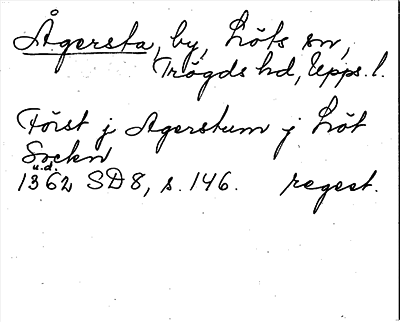 Ågersta, by, Löts sn,
Trögds hd, Upps. l.
Först j Agerstum j Löt
Sockn
u.d.
1362 SD8, s. 146. regest.